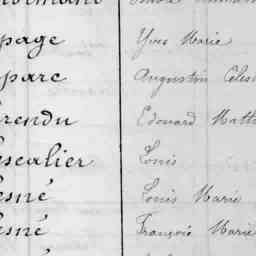 page Yves Marie
parc Augustin Celes
rendu Edouard Math
escalier Louis
esné Louis Marie
esné François Marie